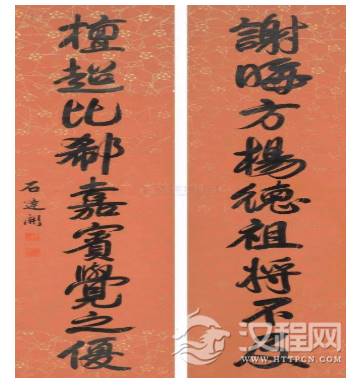 謝晦方楊德祖將不及
檀超比郗嘉賓覺之優
石達開
汉程网
WWW.HTTPCN.COM